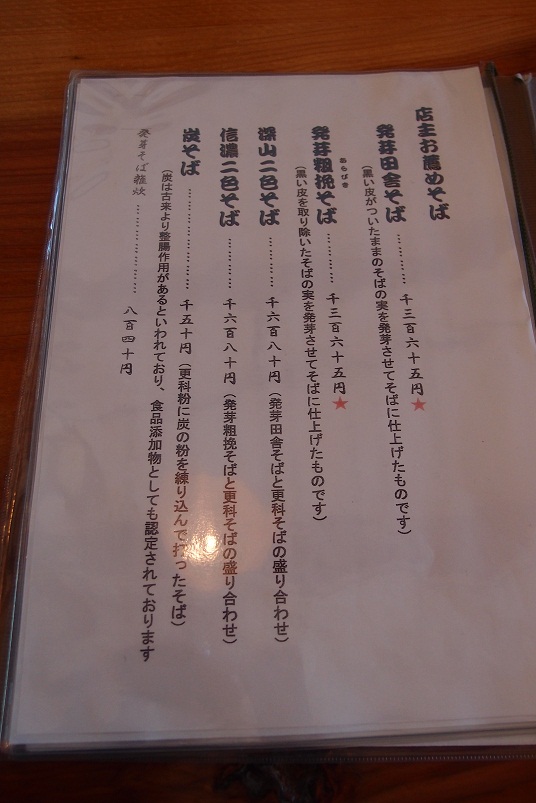 店主お薦めそば
発芽田舎そば ………… 千三百六十五円★
(黒い皮がついたままのそばの実を発芽させてそばに仕上げたものです)
あらびき
発芽粗挽そば ………… 千三百六十五円★
(黒い皮を取り除いたそばの実を発芽させてそばに仕上げたものです)
深山二色そば ………… 千六百八十円(発芽田舎そばと更科そばの盛り合わせ)
信濃二色そば ………… 千六百八十円(発芽粗挽そばと更科そばの盛り合わせ)
炭そば ………………… 千五十円(更科粉に炭の粉を練り込んで打ったそば)
(炭は古来より整腸作用があるといわれており、食品添加物としても認定されております
発芽そば雑炊 ………………… 八百四十円